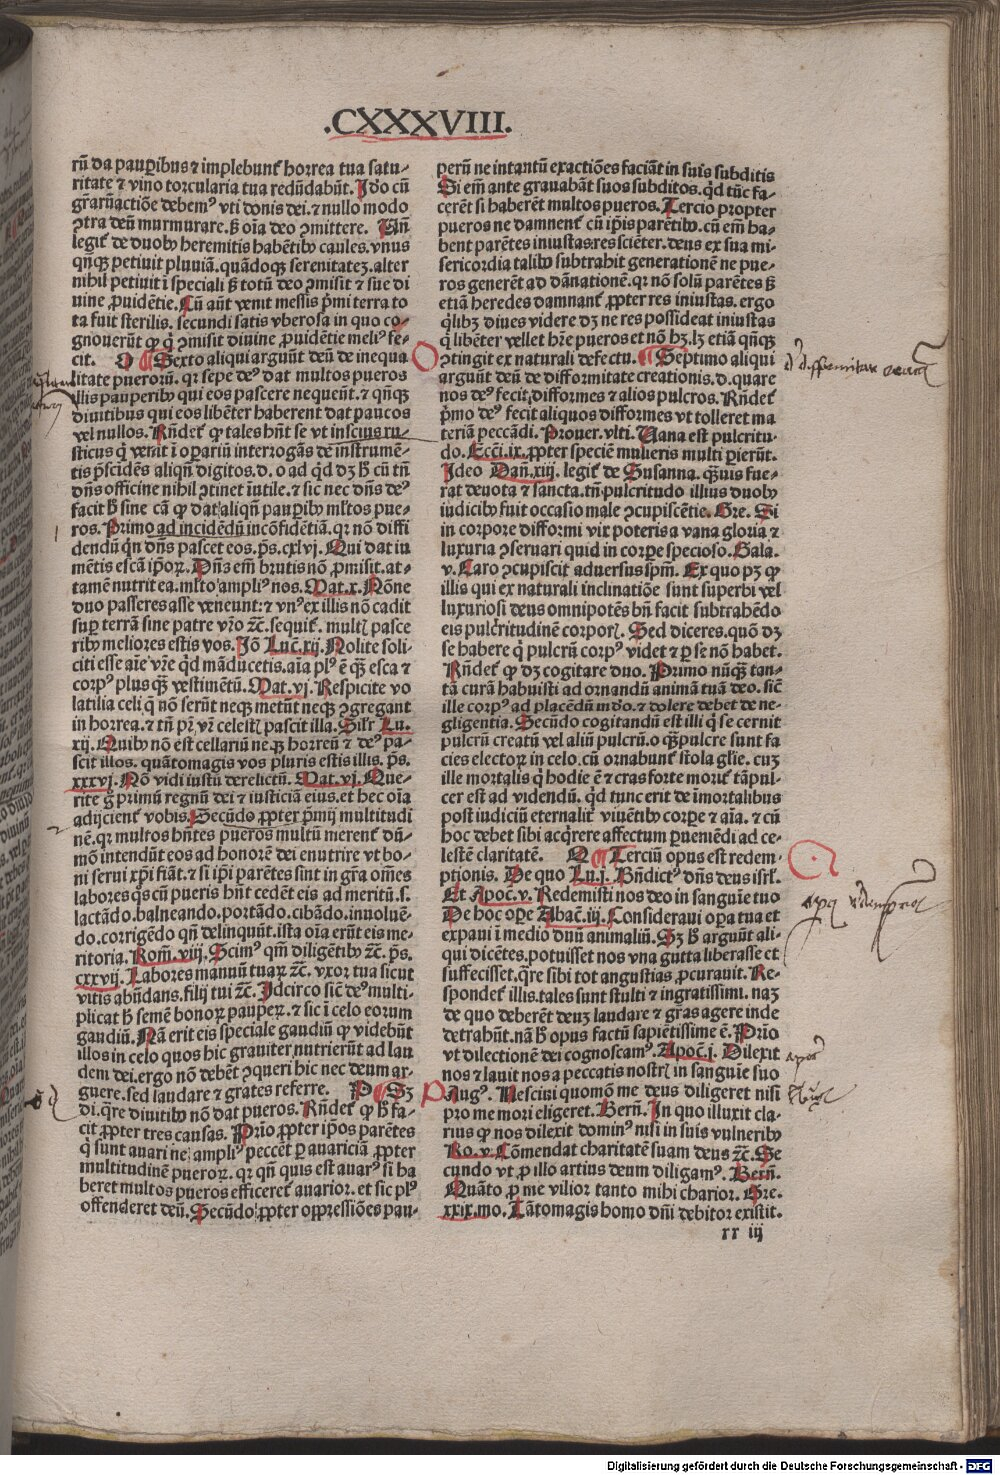 .CXXXVIII.
rũ da pauꝑibus ⁊ implebunt̃ horrea tua satu⸗
ritate ⁊ vino torcularia tua redũdabũt. Ido cũ
gr̃arũactiõe debemꝰ vti donis dei. ⁊ nullo modo
ꝯtra deũ murmurare. sꝫ oĩa deo ꝯmittere.
legit̃ de duobꝰ heremitis habẽtibꝰ caules. vnus
qñqꝫ petiuit pluuiã. quãdoqꝫ serenitatez. alter
nihil petiuit ĩ speciali sꝫ totũ deo ꝯmisit ⁊ sue di
uine ꝓuidẽtie. Cũ aũt venit messis pͥmi terra to
ta fuit sterilis. secundi satis vberosa in quo co⸗
gnouerũt ꝙ qͥ ꝯmisit diuine ꝓuidẽtie meliꝰ fe⸗
cit. O ¶ Sexto aliqui arguũt deũ de inequa
litate puerorũ. qr sepe deꝰ dat multos pueros
illis pauperibꝰ qui eos pascere nequeũt. ⁊ qñqꝫ
diuitibus qui eos libẽter haberent dat paucos
vel nullos. Rñdet̃ ꝙ tales hñt se vt inscius ru⸗
sticus qͥ venit ĩ oꝑariũ interrogãs de instrumẽ⸗
tis pͥscidẽs aliqñ digitos. d. o ad qͥd dꝫ hͦ cũ tñ
dñs officine nihil ꝯtinet ĩutile. ⁊ sic nec dñs deꝰ
facit hͦ sine cã ꝙ dat aliqñ pauꝑibꝰ ml̃tos pue⸗
ros. Primo ad incidẽdũ incõfidẽtiã. qr nõ diffi
dendũ qͥn dñs pascet eos. ps̃. cxlvj. Qui dat iu
mẽtis escã ip̃oꝝ. Dñs em̃ brutis nõ ꝓmisit. at⸗
tamẽ nutrit ea. ml̃to ampliꝰ nos. Mat. x. Nõne
duo passeres asse veneunt: ⁊ vnꝰ ex illis nõ cadit
suꝑ terrã sine patre vr̃o ⁊c̃. sequit̃. multꝭ passe
ribꝰ meliores estis vos. Jõ Luc̃. xij. Nolite soli⸗
citi esse aĩe vr̃e qͥd mãducetis. aĩa plꝰ ẽ qꝫ̃ esca ⁊
corpꝰ plus qꝫ̃ vestimẽtũ. Mat. vj. Respicite vo
latilia celi qͥ nõ serũt neqꝫ metũt neqꝫ ꝯgregant
in horrea. ⁊ tñ pr̃ vr̃ celestꝭ pascit illa. Silr̃ Lu.
xij. Quibꝰ nõ est cellariũ neqꝫ horreũ ⁊ deꝰ pa⸗
scit illos. quãtomagis vos pluris estis illis. ps̃.
xxxvj. Nõ vidi iustũ derelictũ. Mat. vj. Que⸗
rite gͦ primũ regnũ dei ⁊ iusticiã eius. et hec oĩa
adijcient̃ vobis. Secũdo ꝓpter pͥmij multitudi
nẽ. qr multos hñtes pueros multũ merent̃ dũ⸗
mõ intendũt eos ad honorẽ dei enutrire vt bo⸗
ni serui xp̃i fiãt. ⁊ si ip̃i parẽtes sint in gr̃a om̃es
labores qͥs cũ pueris hñt cedẽt eis ad meritũ. s.
lactãdo. balneando. portãdo. cibãdo. inuoluẽ⸗
do. corrigẽdo qñ delinquũt. ista oĩa erũt eis me⸗
ritoria. Rom̃. viij. Scimꝰ qm̃ diligẽtibꝰ ⁊c̃. ps̃.
cxxvij. Labores manuũ tuaꝝ ⁊c̃. vxor tua sicut
vitis abũdans. filij tui ⁊c̃. Idcirco sic̃ deꝰ multi⸗
plicat hͦ semẽ bonoꝝ pauꝑeꝝ. ⁊ sic ĩ celo eorum
gaudiũ. Nã erit eis speciale gaudiũ ꝙ videbũt
illos in celo quos hic grauiter nutrierũt ad lau
dem dei. ergo nõ debẽt ꝯqueri hic nec deum ar⸗
guere. sed laudare ⁊ grates referre. P ¶ Sꝫ
di. qͣre diuitibꝰ nõ dat pueros. Rñdet̃ ꝙ hͦ fa⸗
cit ꝓpter tres causas. Prĩo ꝓpter ip̃os parẽtes
qͥ sunt auari ne ampliꝰ peccẽt ꝑ auariciã ꝓpter
multitudinẽ pueroꝝ. qr qñ quis est auarꝰ si ha
beret multos pueros efficeret̃ auarior. et sic plꝰ
offenderet deũ. Secũdo ꝓpter oppressiões pau⸗
perũ ne intantũ exactiões faciãt in suis subditis
Si em̃ ante grauabãt suos subditos. qͥd tũc fa⸗
cerẽt si haberẽt multos pueros. Tercio propter
pueros ne damnent̃ cũ ip̃is parẽtibꝰ. cũ em̃ ha⸗
bent parẽtes iniustas res sciẽter. deus ex sua mi⸗
sericordia talibꝰ subtrahit generationẽ ne pue⸗
ros generẽt ad dãnationẽ. qr nõ solũ parẽtes sꝫ
etiã heredes damnant̃ ꝓpter res iniustas. ergo
qͥlibꝫ diues videre dꝫ ne res possideat iniustas
qͥ libẽter vellet hr̃e pueros et nõ hꝫ. lꝫ etiã qñqꝫ
ꝯtingit ex naturali defectu. ¶ Septimo aliqui
arguũt deũ de difformitate creationis. d. quare
nos deꝰ fecit difformes ⁊ alios pulcros. Rñdet̃
pͥmo deꝰ fecit aliquos difformes vt tolleret ma
teriã peccãdi. Prouer. vlti. Uana est pulcritu⸗
do. Ecc̃i. ix. ꝓpter speciẽ mulieris multi perierũt.
Ideo Dañ. xiij. legit̃ de Susanna. qꝫ̃uis fue⸗
rat deuota ⁊ sancta. tñ pulcritudo illius duobꝰ
iudicibꝰ fuit occasio male ꝯcupiscẽtie. Gre. Si
in corpore difformi vix poteris a vana gloria ⁊
luxuria ꝯseruari quid in corꝑe specioso. Gala.
v. Caro ꝯcupiscit aduersus spm̃. Ex quo pꝫ ꝙ
illis qui ex naturali inclinatiõe sunt superbi vel
luxuriosi deus omnipotẽs bñ facit subtrahẽdo
eis pulcritudinẽ corporꝭ. Sed diceres. quõ dꝫ
se habere qͥ pulcrũ corpꝰ videt ⁊ ꝑ se nõ habet.
Rñdet̃ ꝙ dꝫ cogitare duo. Primo nũqꝫ̃ tan⸗
tã curã habuisti ad ornandũ animã tuã deo. sic̃
ille corpꝰ ad placẽdũ mũdo. ⁊ dolere debet de ne⸗
gligentia. Secũdo cogitandũ est illi qͥ se cernit
pulcrũ creatũ vel aliũ pulcrũ. o qꝫ̃pulcre sunt fa
cies electoꝝ in celo. cũ ornabunt̃ stola glĩe. cuꝫ
ille mortalis qͥ hodie ẽ ⁊ cras forte moret̃ tãpul⸗
cer est ad videndũ. qͥd tunc erit de ĩmortalibus
post iudiciũ eternalit̃ viuẽtibꝰ corꝑe ⁊ aĩa. ⁊ cũ
hoc debet sibi acqͥrere affectum ꝑueniẽdi ad ce⸗
lestẽ claritatẽ. Q ¶ Terciũ opus est redem⸗
ptionis. De quo Lu. j. Bñdictꝰ dñs deus isrl̃.
Et Apoc̃. v. Redemisti nos deo in sanguĩe tuo
De hoc oꝑe Abac̃. iij. Consideraui opera tua et
expaui ĩ medio duũ animaliũ. Sꝫ hͦ arguũt ali⸗
qui dicẽtes. potuisset nos vna gutta liberasse et
suffecisset. qͣre sibi tot angustias ꝓcurauit. Re⸗
spondet̃ illis. tales sunt stulti ⁊ ingratissimi. naꝫ
de quo deberẽt deuꝫ laudare ⁊ gr̃as agere inde
detrahũt. nã hͦ opus factũ sapiẽtissime ẽ. Prĩo
vt dilectionẽ dei cognoscamꝰ. Apoc̃. j. Dilexit
nos ⁊ lauit nos a peccatis nostrꝭ in sanguĩe suo
Augꝰ. Nesciui quomõ me deus diligeret nisi
pro me mori eligeret. Berñ. In quo illuxit cla⸗
rius ꝙ nos dilexit dominꝰ nisi in suis vulneribꝰ
Ro. v. Cõmendat charitatẽ suam deus ⁊c̃. Se
cundo vt ꝓ illo artius deum diligamꝰ. Berñ.
Quãto ꝓ me vilior tanto mihi charior. Gre.
xxix. mo. Tãtomagis homo dñi debitor existit.
xx iij
Digitalisierung gefördert durch die Deutsche Forschungsgemeinschaft - DFG